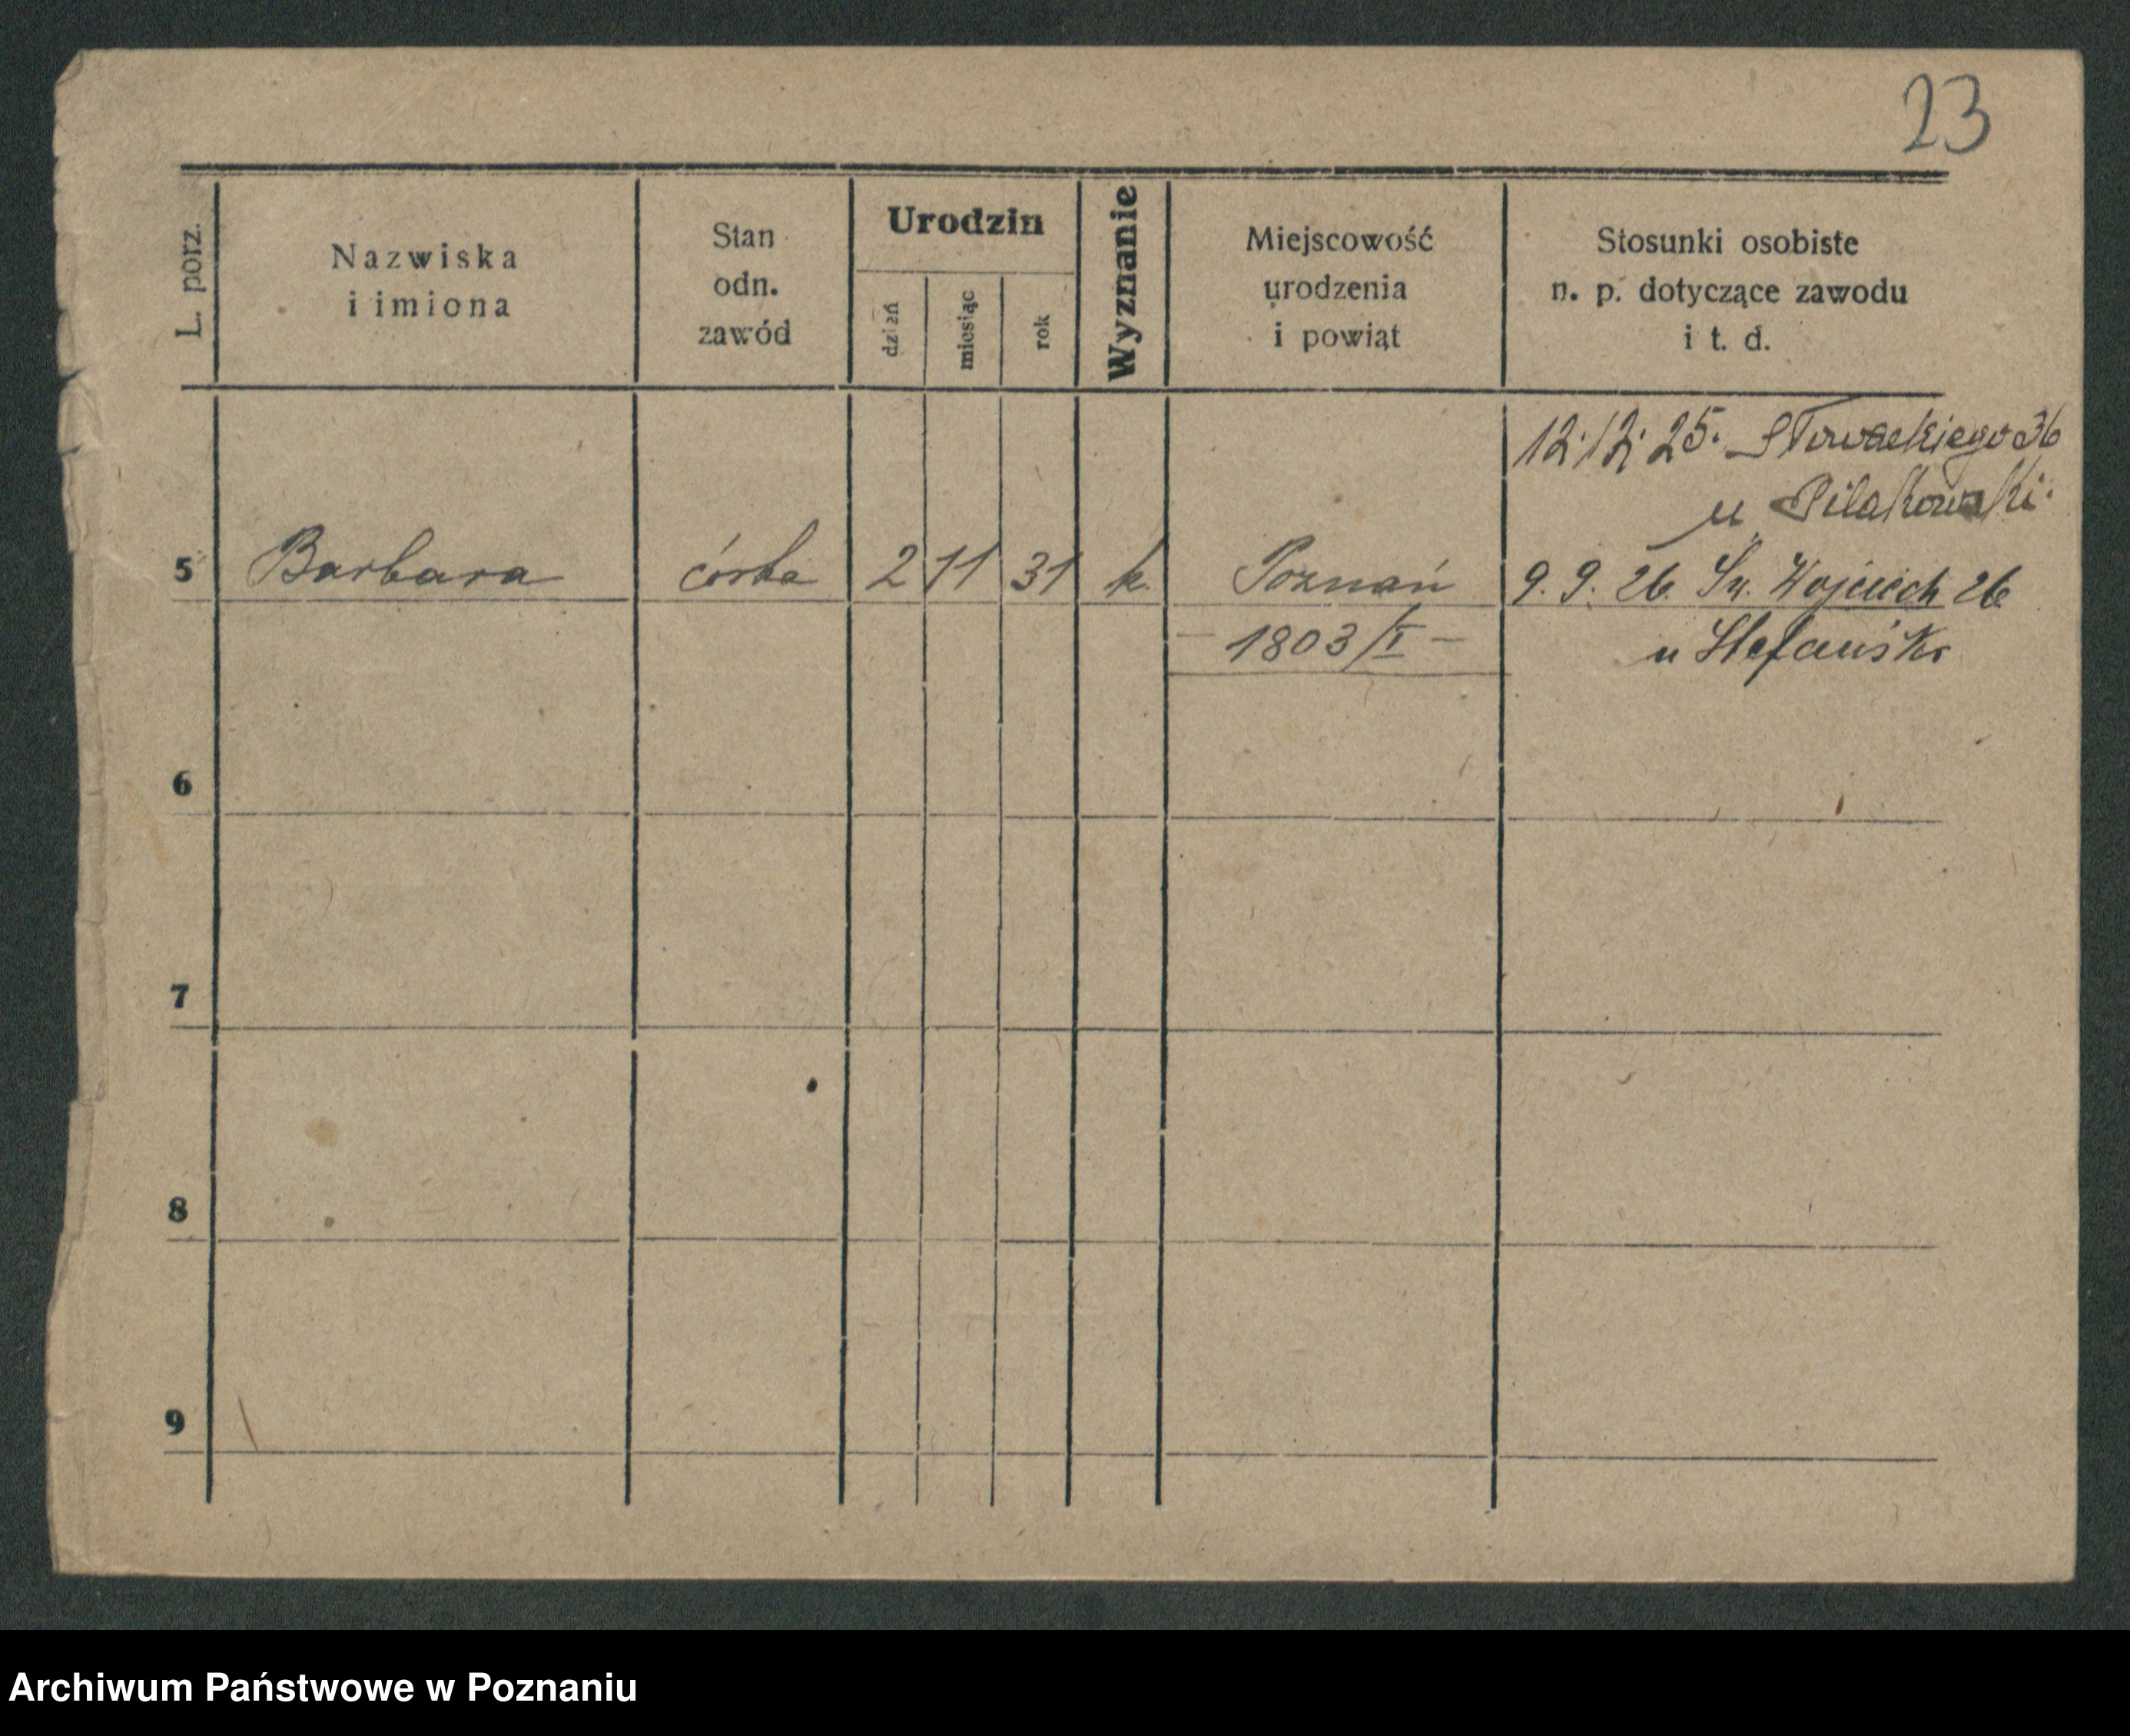 23
L. porz.
Nazwiska
i imiona
Stan
odn.
zawód
Urodzin
dzień
miesiąc
rok
Wyznanie
Miejscowość
urodzenia
i powiąt
Stosunki osobiste
n. p. dotyczące zawodu
i t. d.
12.12.25. Słowackiego 36
u Pilakowski.
5 Barbara córka 2 11 31 k. Poznań 9.9.26. Św. Wojciech 26
- 1803/I - u Stefański
6
7
8
9
Archiwum Państwowe w Poznaniu